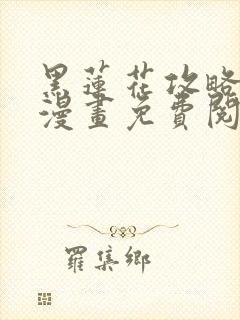 黑蓮花攻略
漫畫免費閱
羅集鄉